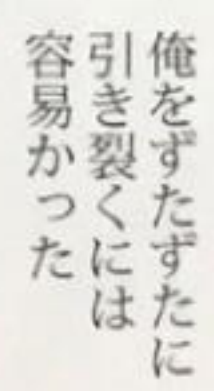 俺をずたずたに
引き裂くには
容易かった